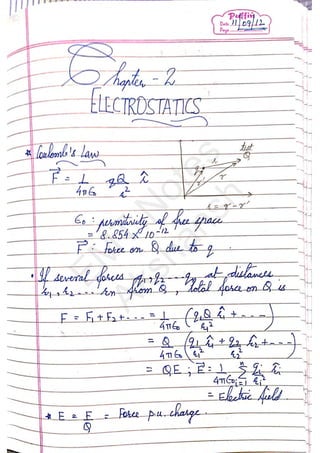 Puffin
Date 11/09/12
Page
Chapter - 2
ELECTROSTATICS
* Coulomb's Law
F⃗ = 1/4πϵ₀ qQ/r² r̂
test
Q
q
r
r'
r = r - r'
ϵ₀ : permitivity of free space
= 8.854 × 10⁻¹²
F⃗ : Force on Q due to q.
• If several forces q₁, q₂ ... qn at distances
r₁, r₂ .... rn from Q, total force on Q is
F = F₁ + F₂ + ... = 1/4πϵ₀ (q₁Q/r₁² r̂₁ + ....)
= Q/4πϵ₀ (q₁/r₁² r̂₁ + q₂/r₂² r̂₂ + ...)
= QE ; E⃗ = 1/4πϵ₀ Σⁿᵢ₌₁ qᵢ/rᵢ² r̂ᵢ
= Electric field.
* E = F/Q = Force p.u. charge.